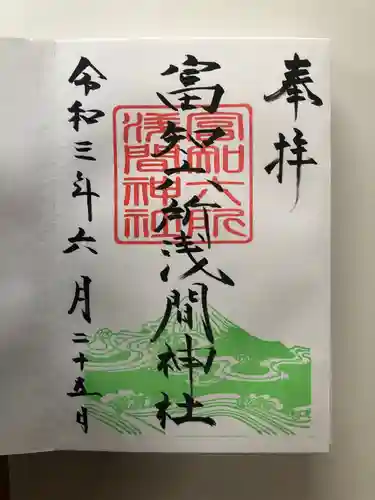 奉拝
富知六所浅間神社
富知六所
浅間神社
令和三年六月二十五日